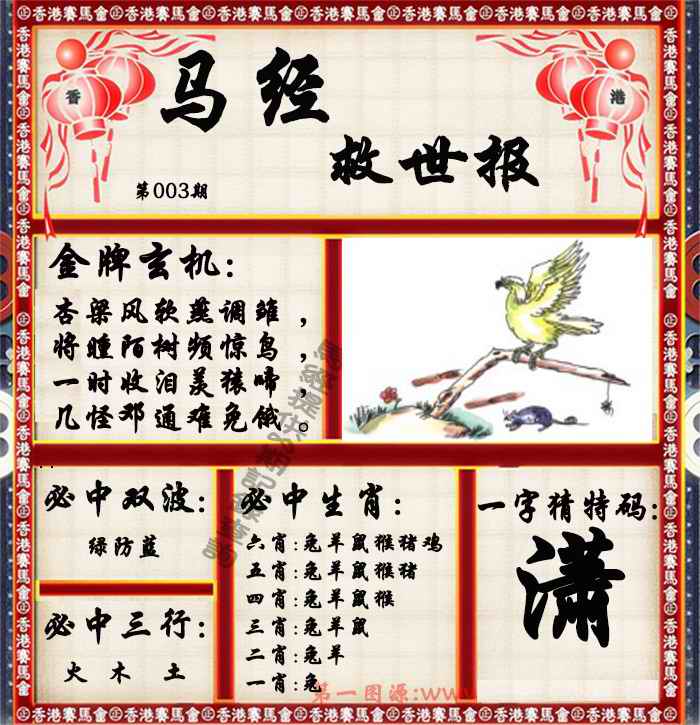 香港賽馬會
香 港
马经
救世报
第003期
金牌玄机：
杏梁风软燕调雏，
将睡陌树频惊鸟，
一时收泪羡猿啼，
几怪邓通难免饿。
必中双波：
绿防蓝
必中三行：
火 木 土
必中生肖：
六肖：兔羊鼠猴猪鸡
五肖：兔羊鼠猴猪
四肖：兔羊鼠猴
三肖：兔羊鼠
二肖：兔羊
一肖：兔
一字猜特码：
潇
第一图源:www